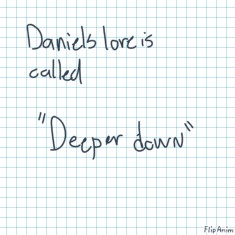 Daniels lore is
called
"Deeper down"
FlipAnim